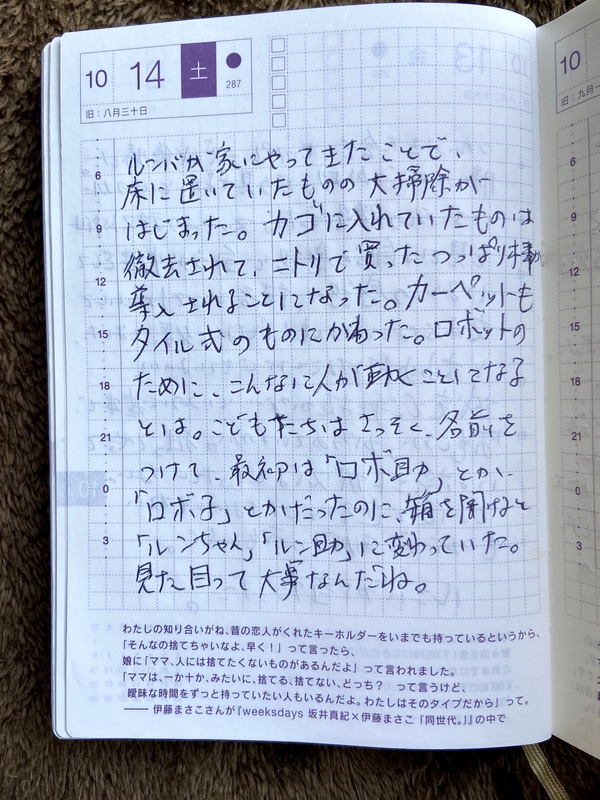 10 14 土 ● 287
旧：八月三十日
ルンバが家にやってきたことで、
6
床に置いていたものの大掃除が
はじまった。カゴに入れていたものは
9
撤去されて、ニトリで買ったつっぱり棒が
12
導入されることになった。カーペットも
15
タイル式のものにかわった。ロボットの
18
ために、こんなに人が動くことになる
とは。こどもたちはさっそく、名前を
21
つけて、最初は「ロボ助」とか、
0
「ロボ子」とかだったのに、箱を開けると
3
「ルンちゃん」「ルン助」に変わっていた。
見た目って大事なんだね。
わたしの知り合いがね、昔の恋人がくれたキーホルダーをいまでも持っているというから、
「そんなの捨てちゃいなよ、早く！」って言ったら、
娘に「ママ、人には捨てたくないものがあるんだよ」って言われました。
「ママは、一か十か、みたいに、捨てる、捨てない、どっち？　って言うけど、
曖昧な時間をずっと持っていたい人もいるんだよ。わたしはそのタイプだから」って。
―― 伊藤まさこさんが『weeksdays 坂井真紀×伊藤まさこ「同世代。」』の中で
10
旧：九月一
6
9
12
15
18
21
0
3